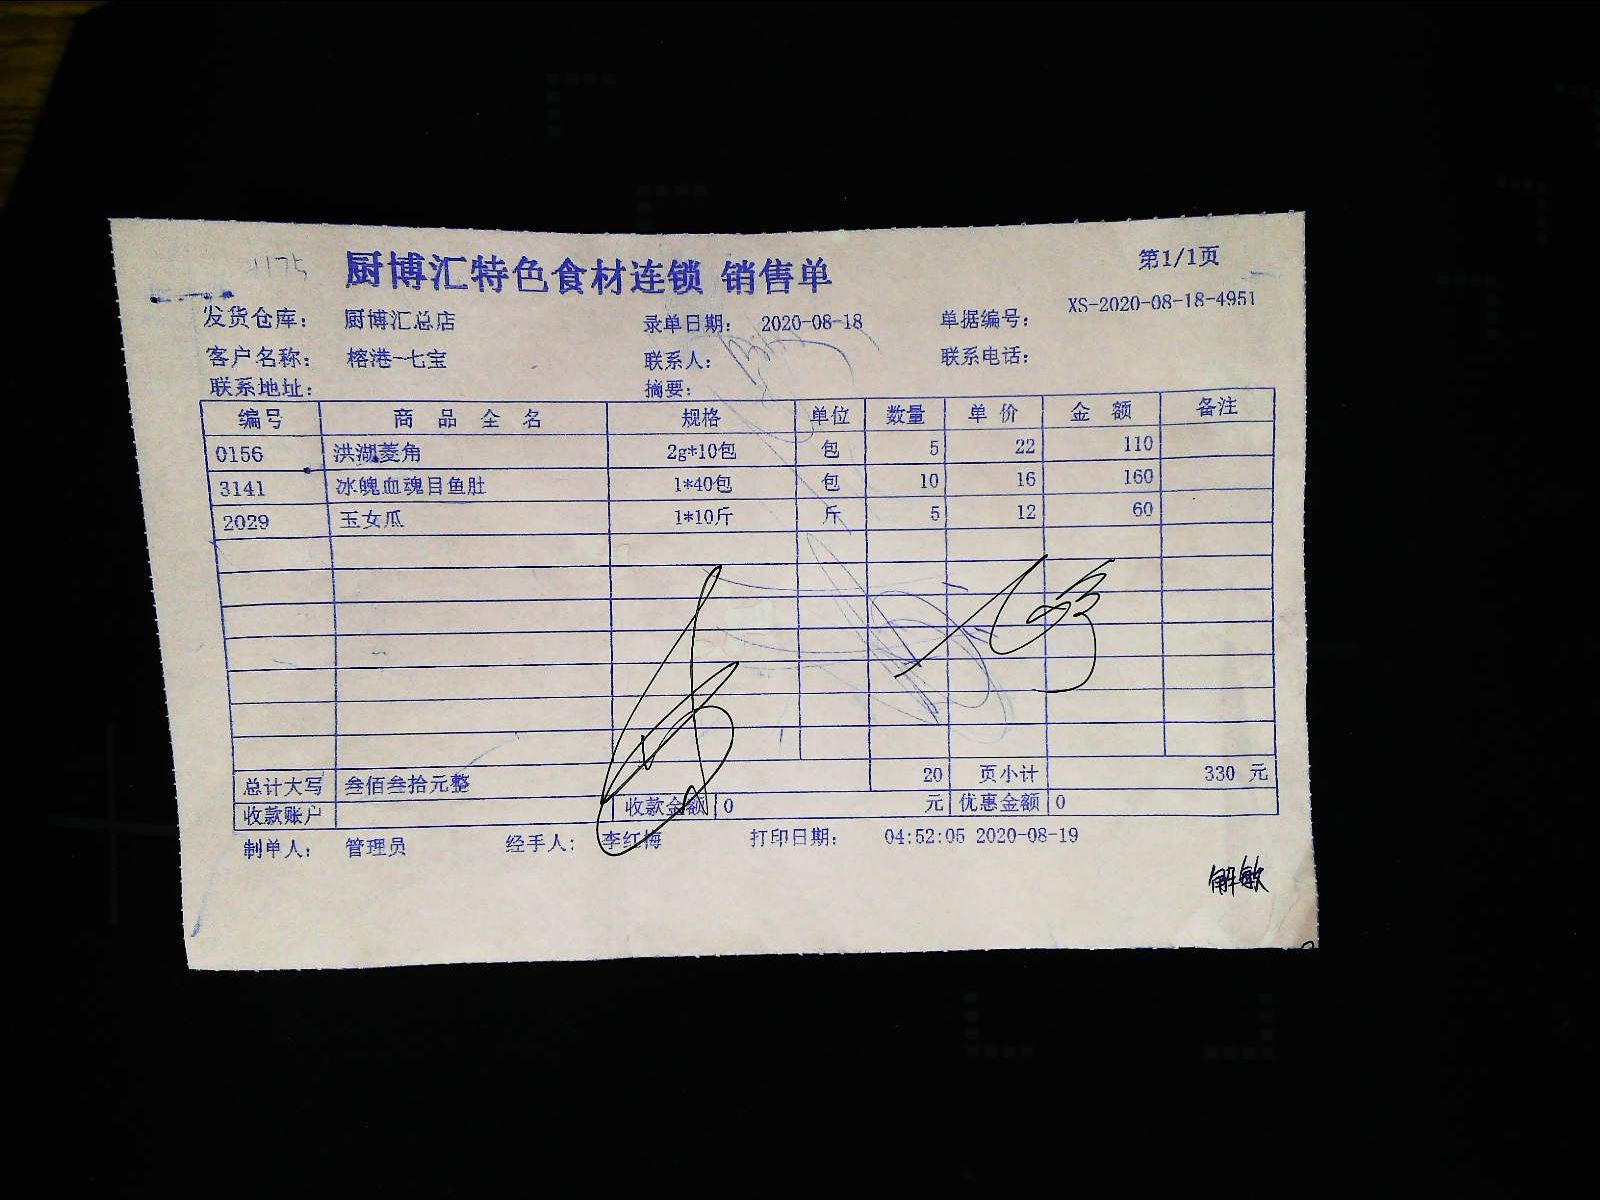 1175
厨博汇特色食材连锁 销售单
第1/1页
发货仓库： 厨博汇总店 录单日期： 2020-08-18 单据编号： XS-2020-08-18-4951
客户名称： 榕港-七宝 联系人： 联系电话：
联系地址： 摘要：
编号 商品全名 规格 单位 数量 单价 金额 备注
0156 洪湖菱角 2g*10包 包 5 22 110
3141 冰魄血魂目鱼肚 1*40包 包 10 16 160
2029 玉女瓜 1*10斤 斤 5 12 60
总计大写 叁佰叁拾元整 20 页小计 330 元
收款账户 收款金额 0 元 优惠金额 0
制单人： 管理员 经手人： 李红梅 打印日期： 04:52:05 2020-08-19
解敏